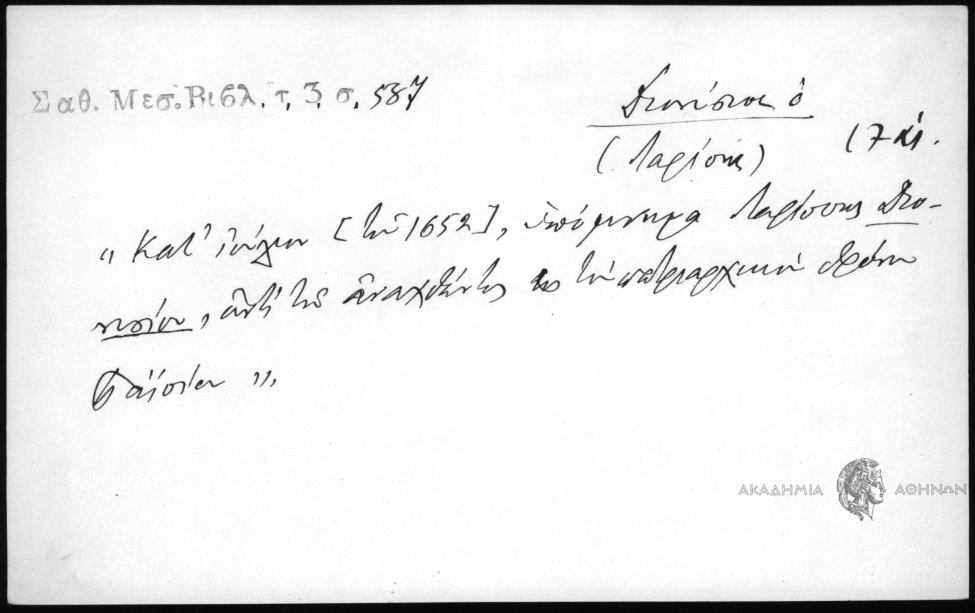 Σαθ. Μεσ. Βιβλ. τ. 3. σ. 587
Διονύσιος ὁ
(Λαρίσης)
17 αἰ.
"Κατ' Ἰούλιον [τοῦ 1652], ὑπόμνημα Λαρίσσης Διο-
νυσίου, ἀντὶ τοῦ ἀναχθέντος εἰς τὸν πατριαρχικὸν θρόνον
Παϊσίου".
ΑΚΑΔΗΜΙΑ ΑΘΗΝΩΝ